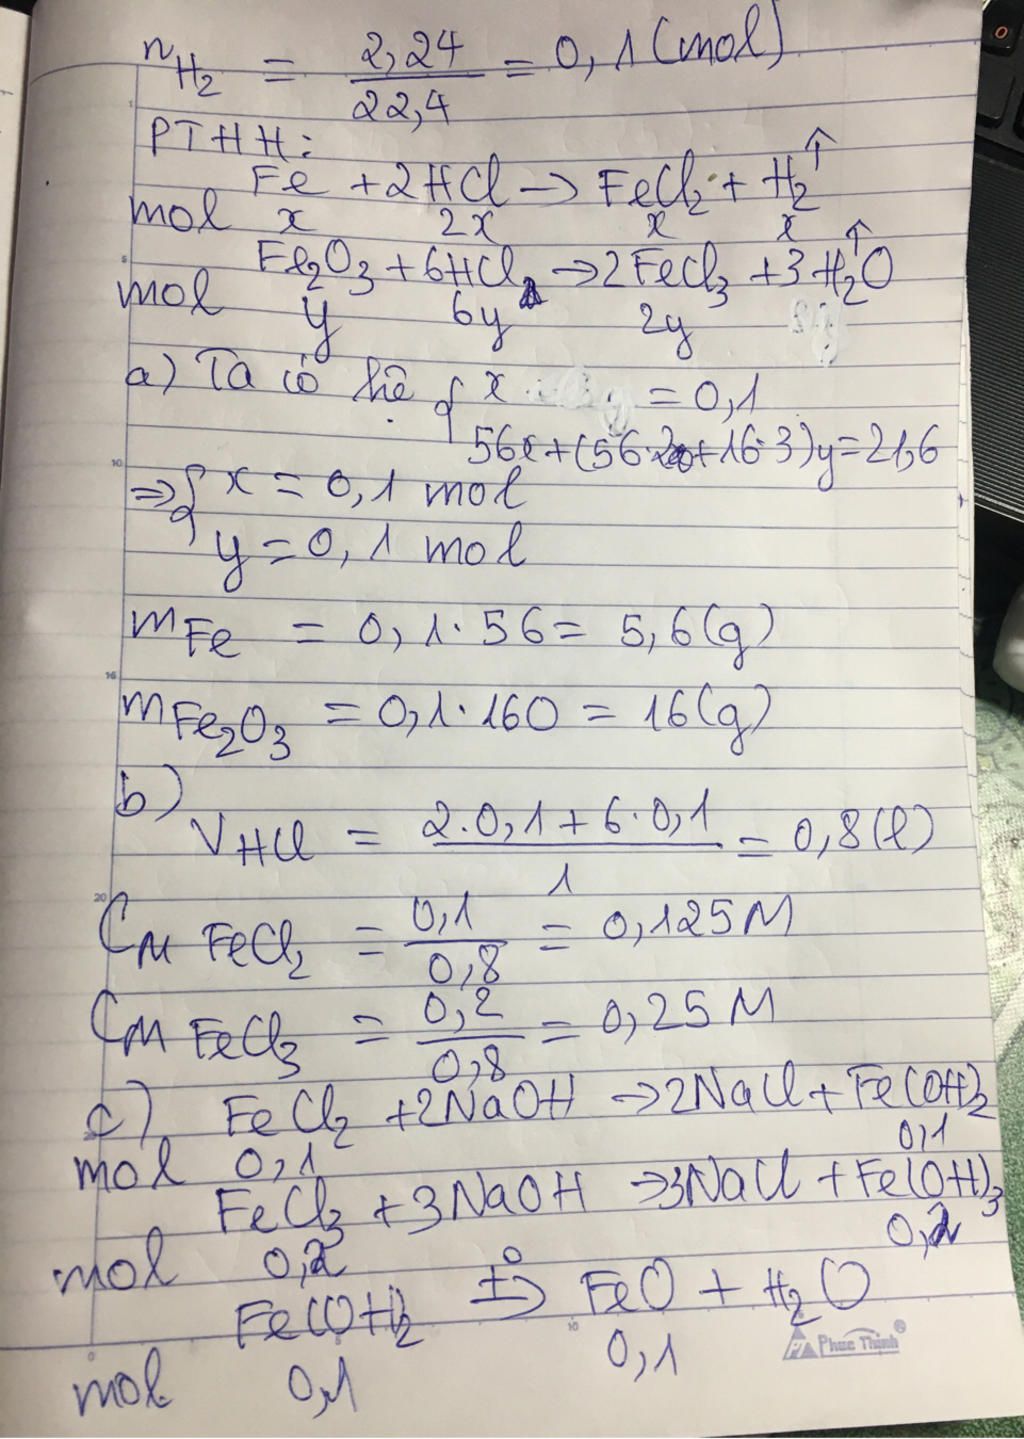 nH₂ = 2,24/22,4 = 0,1 (mol)
PTHH:
Fe + 2HCl → FeCl₂ + H₂↑
mol x 2x x x
Fe₂O₃ + 6HCl → 2FeCl₃ + 3H₂O↑
mol y 6y 2y
a) Ta có hệ { x = 0,1
56x + (56.2+16.3)y = 21,6
⇒ { x = 0,1 mol
y = 0,1 mol
mFe = 0,1.56 = 5,6 (g)
mFe₂O₃ = 0,1.160 = 16 (g)
b)
VHCl = (2.0,1 + 6.0,1)/1 = 0,8 (l)
CM FeCl₂ = 0,1/0,8 = 0,125M
CM FeCl₃ = 0,2/0,8 = 0,25M
c) FeCl₂ + 2NaOH → 2NaCl + Fe(OH)₂
mol 0,1 0,1
FeCl₃ + 3NaOH → 3NaCl + Fe(OH)₃
mol 0,2 0,2
Fe(OH)₂ t° → FeO + H₂O
mol 0,1 0,1
Phuc Thinh